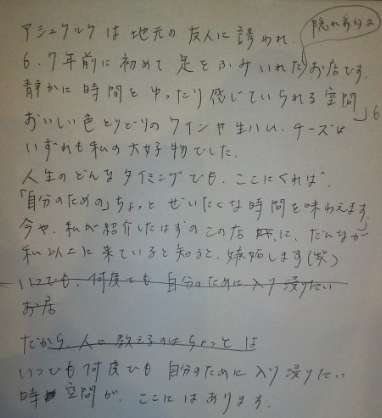 隠れ家的な
アシュケルケは地元の友人に誘われ、
6、7年前に初めて足をふみいれたお店です。
静かに時間をゆったり感じていられる空間」6
おいしい色とりどりのワインや生ハム、チーズは
いずれも私の大好物でした。
人生のどんなタイミングでも、ここにくれば、
「自分のための」ちょっとぜいたくな時間を味わえます。
今や、私が紹介したはずのこの店に、だんなが
私以上に来ていると知ると、嫉妬します(笑)
いつでも、何度でも自分のために入り浸りたい
お店
だから人に教えるのはちょっとは
いつでも何度でも自分のために入り浸りたい
時空間が、ここにはあります。